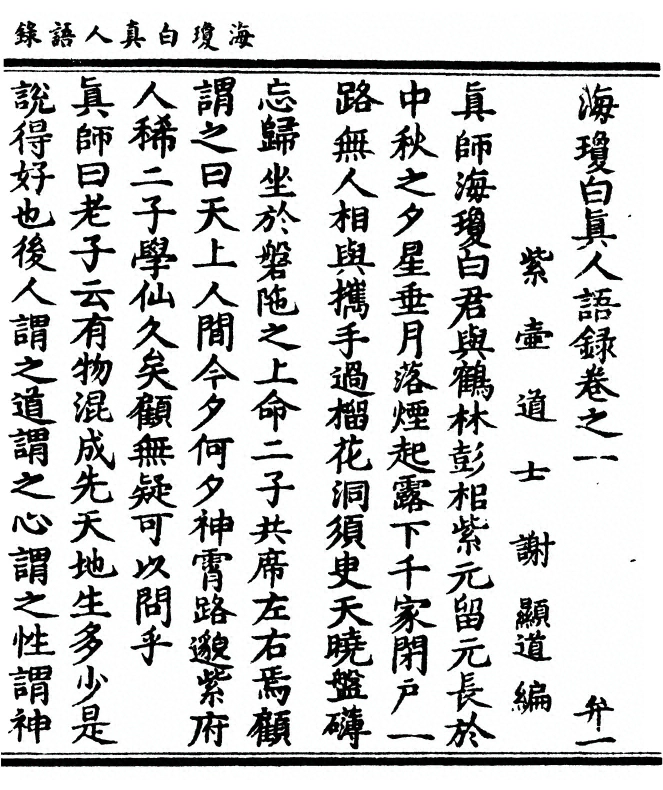 海瓊白真人語錄
海瓊白真人語錄卷之一
弁一
紫壺道士謝顯道編
真師海瓊白君與鶴林彭耜紫元留元長於
中秋之夕星垂月落煙起露下千家閉戶一
路無人相與攜手過榴花洞須臾天曉盤礴
忘歸坐於磐陁之上命二子共席左右焉顧
謂之曰天上人間今夕何夕神霄路邈紫府
人稀二子學仙久矣顧無疑可以問乎
真師曰老子云有物混成先天地生多少是
說得好也後人謂之道謂之心謂之性謂神